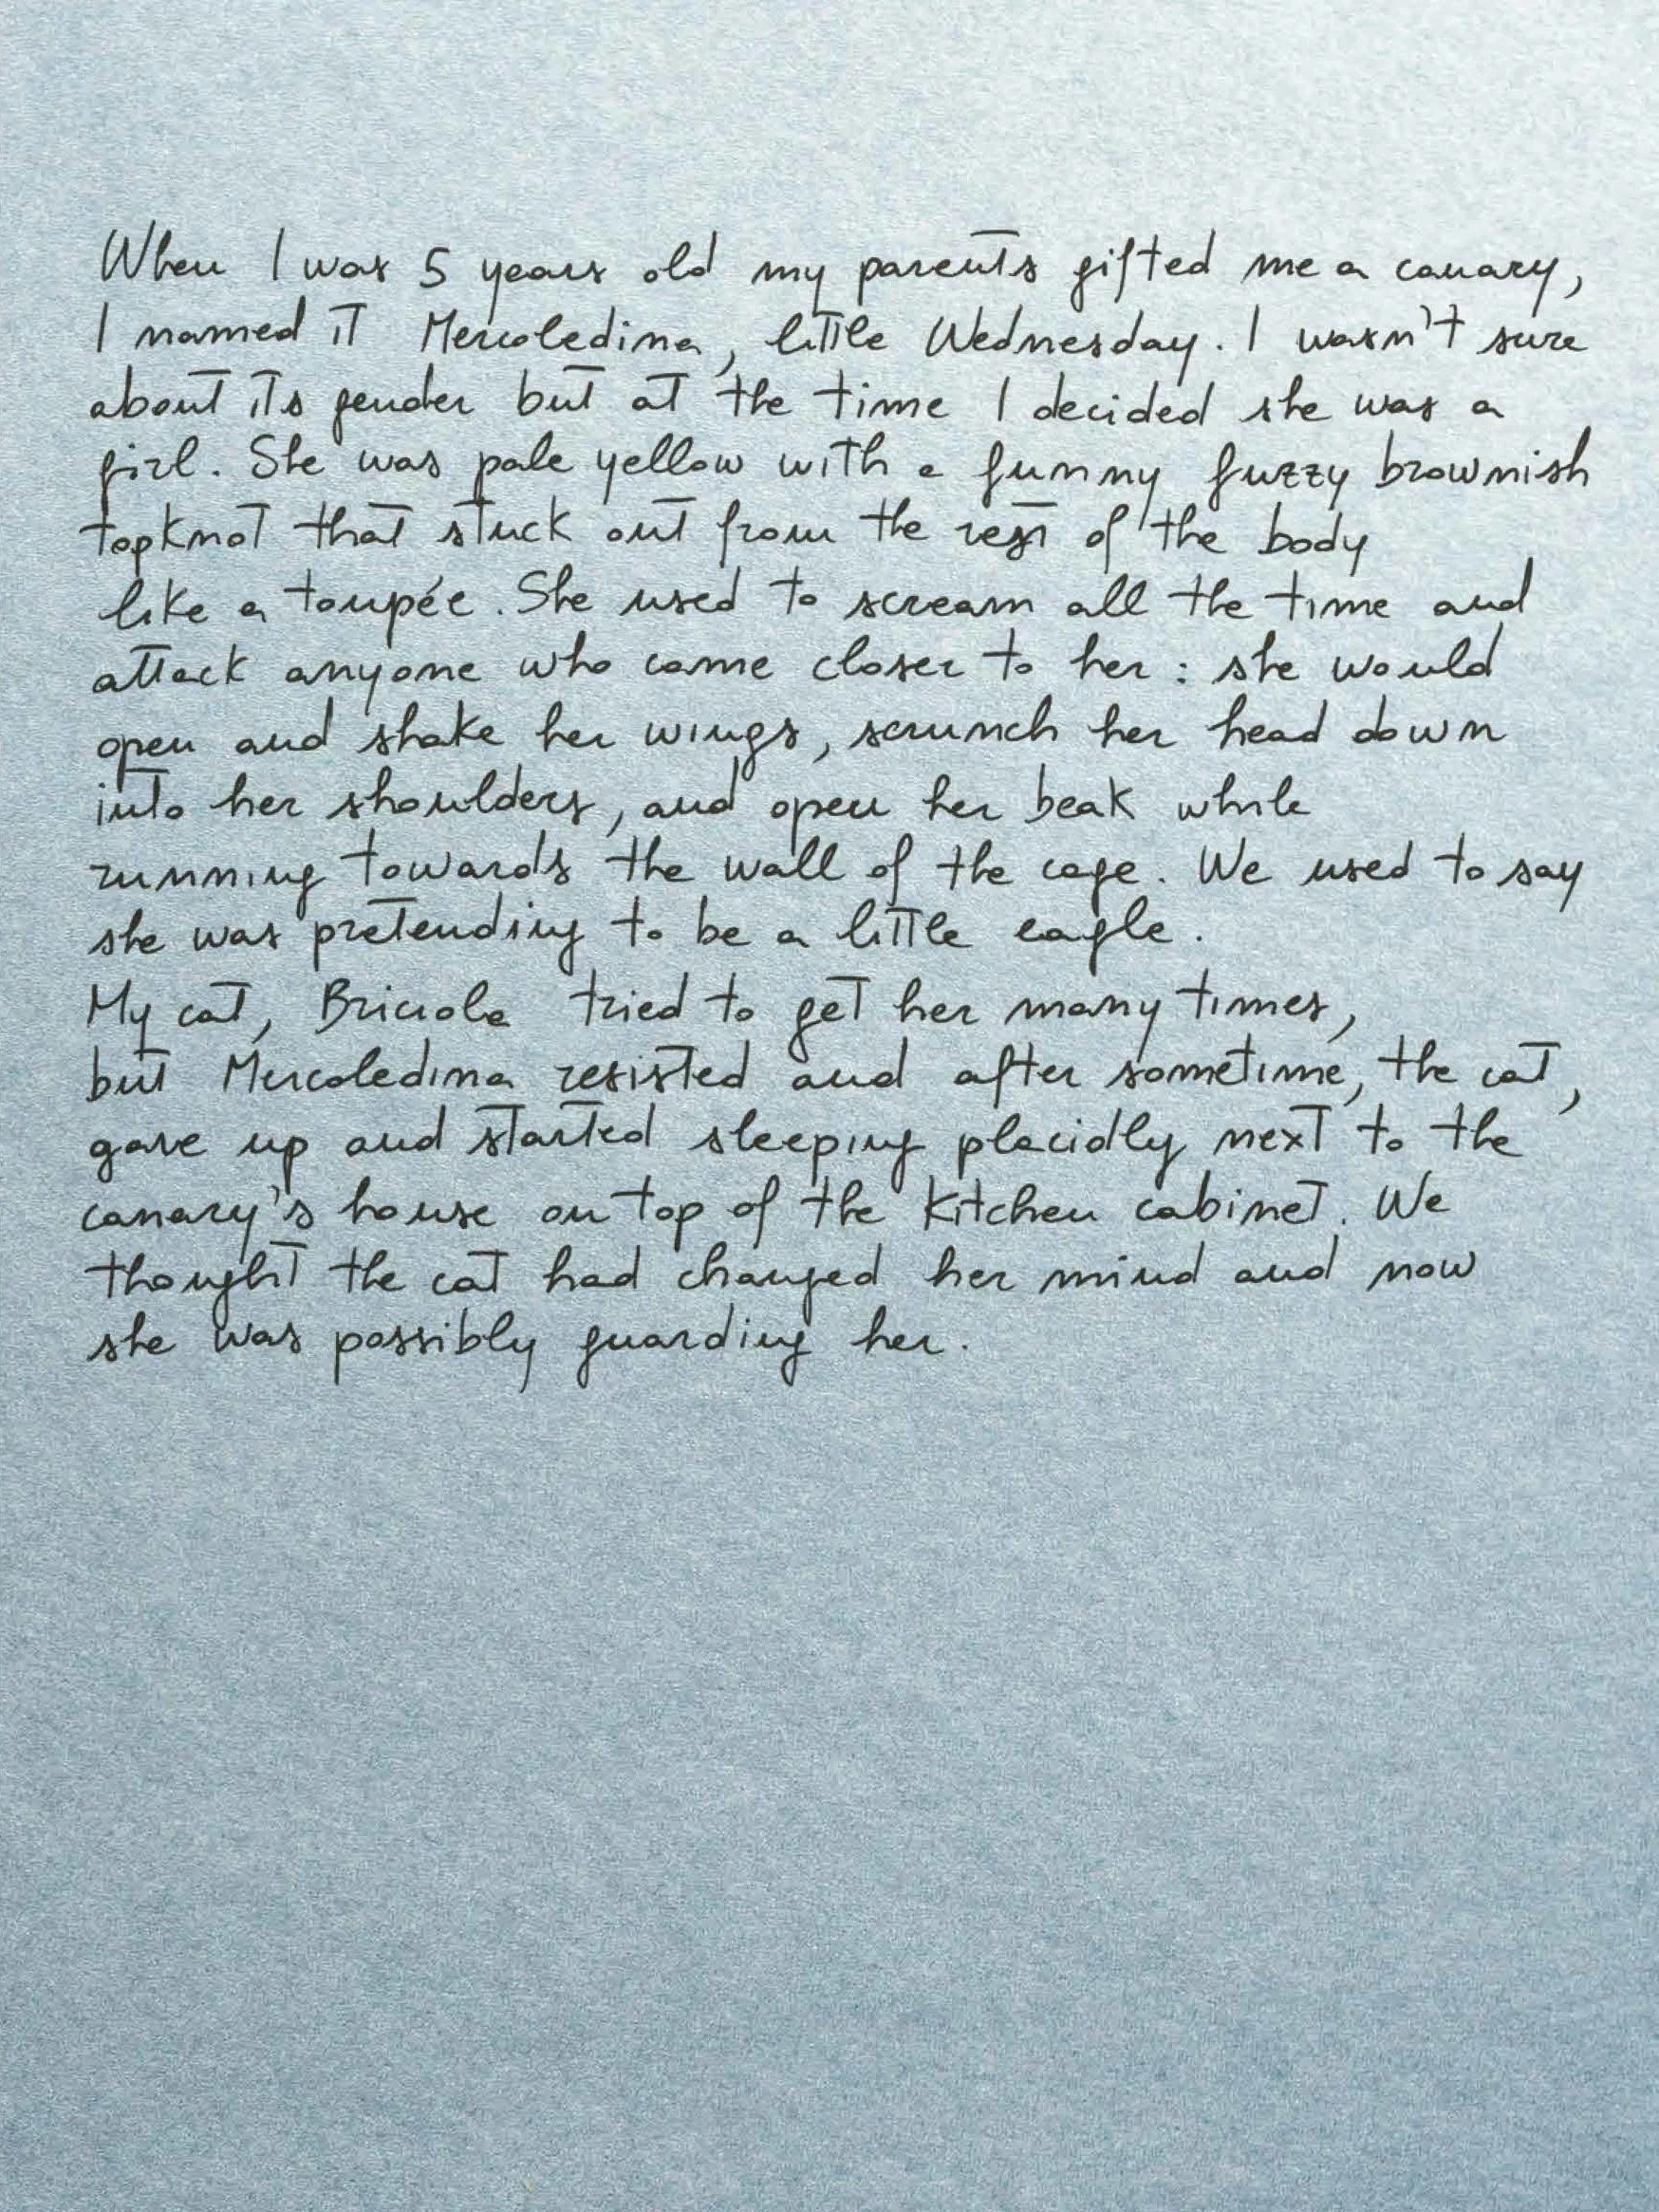 When I was 5 years old my parents gifted me a canary,
I named it Mercoledina, little Wednesday. I wasn't sure
about its gender but at the time I decided she was a
girl. She was pale yellow with a funny fuzzy brownish
topknot that stuck out from the rest of the body
like a toupée. She used to scream all the time and
attack anyone who came closer to her: she would
open and shake her wings, scrunch her head down
into her shoulders, and open her beak while
running towards the wall of the cage. We used to say
she was pretending to be a little eagle.
My cat, Briciola tried to get her many times,
but Mercoledina resisted and after sometime, the cat,
gave up and started sleeping placidly next to the
canary's house on top of the kitchen cabinet. We
thought the cat had changed her mind and now
she was possibly guarding her.